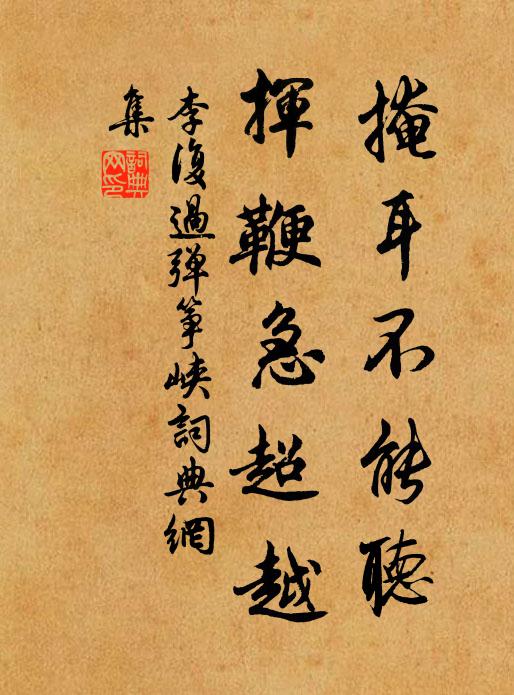 掩耳不能聽
揮鞭急超越
李復過弹箏峽詞典網
集
詞典
网印